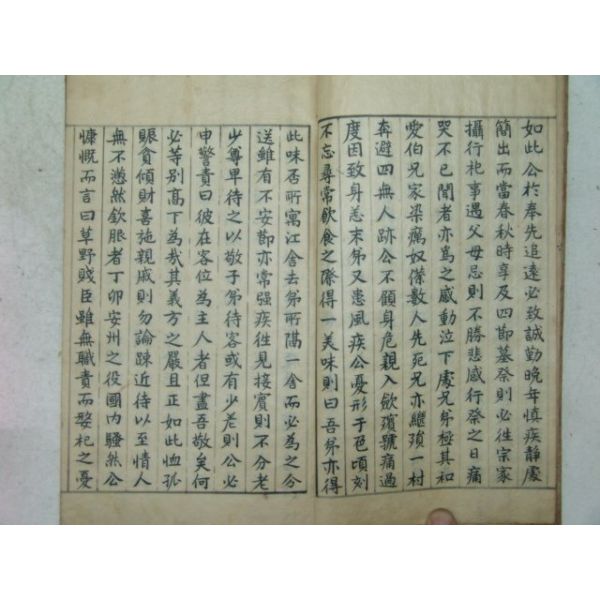 如此公於奉先追遠必致誠勤晚年慎疾靜處
簡出而當春秋時享及四節墓祭則必徃宗家
攝行祀事遇父母忌則不勝悲感行祭之日痛
哭不已聞者亦爲之感動泣下處兄弟極其和
愛伯兄家染癘奴僕數人先死兄亦繼殞一村
奔避四無人跡公不顧身危親入斂殯號痛過
度因致身恙末弟又患風疾公憂形于色頃刻
不忘尋常飮食之際得一美味則曰吾弟亦得
此味否所寓江舍去弟所隔一舍而必爲之分
送雖有不安節亦常强疾徃見接賓則不分老
少尊卑待之以敬子弟待客或有少差則公必
申警責曰彼在客位爲主人者但盡吾敬矣何
必等別高下爲哉其義方之嚴且正如此恤孤
賑貪傾財喜施親戚則勿論踈近待以至情人
無不懣然欽服者丁卯安州之役國內騷然公
慷慨而言曰草野賤臣雖無職責而嫠杞之憂